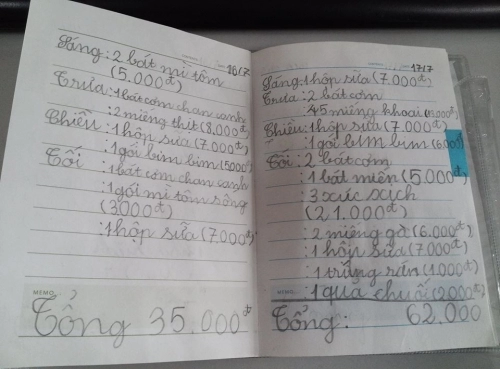 16/7
Sáng: 2 bát mì tôm
(5.000đ)
Trưa: 1 bát cơm chan canh
: 2 miếng thịt (8.000đ)
Chiều: 1 hộp sữa (7.000đ)
: 1 gói bim bim (5000đ)
Tối: 1 bát cơm chan canh
: 1 gói mì tôm sống
(3000đ)
: 1 hộp sữa (7.000đ)
MEMO
Tổng 35.000đ
17/7
Sáng: 1 hộp sữa (7.000đ)
Trưa: 2 bát cơm
: 45 miếng khoai
Chiều: 1 hộp sữa (7.000đ)
: 1 gói bim bim (6.000đ)
Tối: 2 bát cơm
: 1 bát miến (5.000đ)
: 3 xúc xích
(21.000đ)
: 2 miếng gà (6.000đ)
: 1 hộp sữa (7.000đ)
: 1 trứng rán (1.000đ)
MEMO : 1 quả chuối (2000đ)
Tổng: 62.000